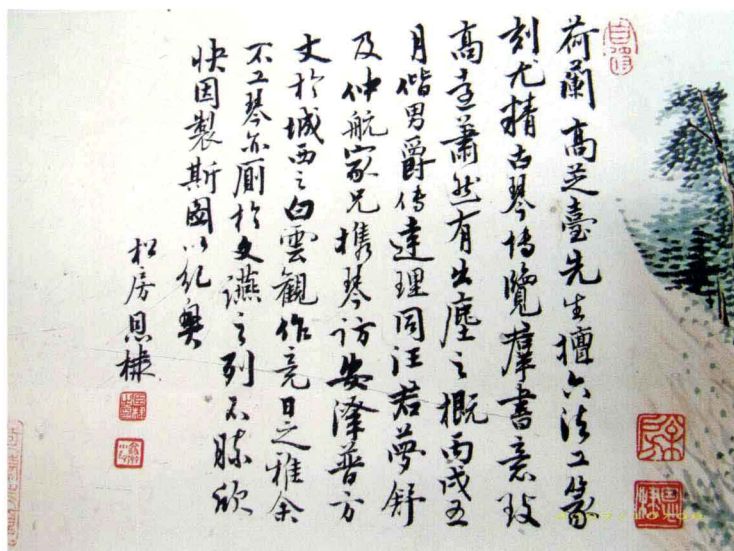 荷蘭高芝臺先生擅六法工篆
刻尤精古琴博覽羣書意致
高蕭然有出塵之概丙戌五
月偕男爵傅達理同汪君夢舒
及仲航家兄携琴訪安澤普方
丈於城西之白雲觀作竟日之雅余
不工琴亦廁於文讌之列不勝欣
快因製斯圖以紀興
松房恩棣